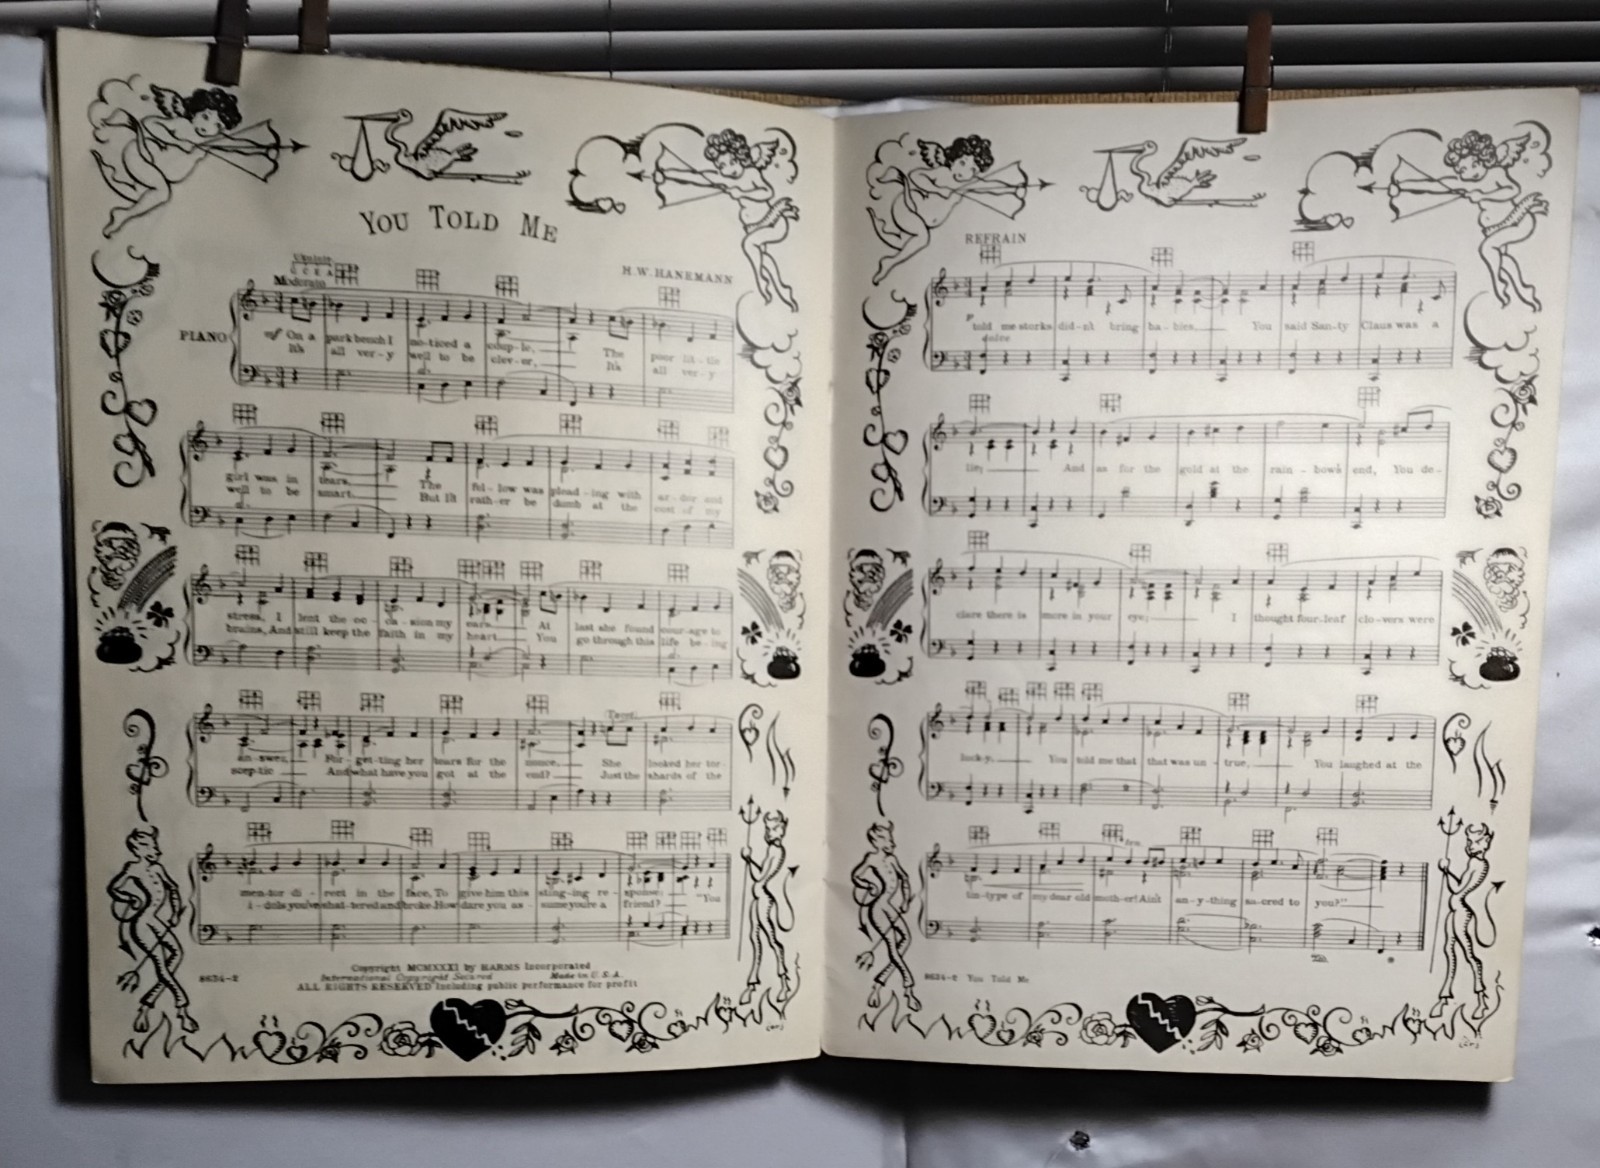 YOU TOLD ME
Ukulele
G C E A
H.W. HANEMANN
Moderato
PIANO
mf On a park bench I no-ticed a coup-le, The poor lit-tle
It's all ver-y well to be clev-er, It's all ver-y
girl was in tears. The fel-low was plead-ing with ar-dor and
well to be smart. But I'll rath-er be dumb at the cost of my
stress, I lent the oc-ca-sion my ears. At last she found cour-age to
brains, And still keep the faith in my heart. You go through this life be-ing
an-swer, For-get-ting her tears for the nonce, She looked her tor-
scep-tic And what have you got at the end? Just the shards of the
men-tor di-rect in the face, To give him this sting-ing re-sponse: "You
i-dols you've shat-tered and broke. How dare you as-sume you're a friend?
8634-2
Copyright MCMXXXI by HARMS Incorporated
International Copyright Secured Made in U.S.A.
ALL RIGHTS RESERVED Including public performance for profit
REFRAIN
P
told me storks did-n't bring ba-bies, You said San-ty Claus was a
dolce
lie; And as for the gold at the rain-bow's end, You de-
clare there is more in your eye; I thought four-leaf clo-vers were
luck-y. You told me that that was un-true, You laughed at the
tin-type of my dear old moth-er! Ain't an-y-thing sa-cred to you?"
8634-2 You Told Me